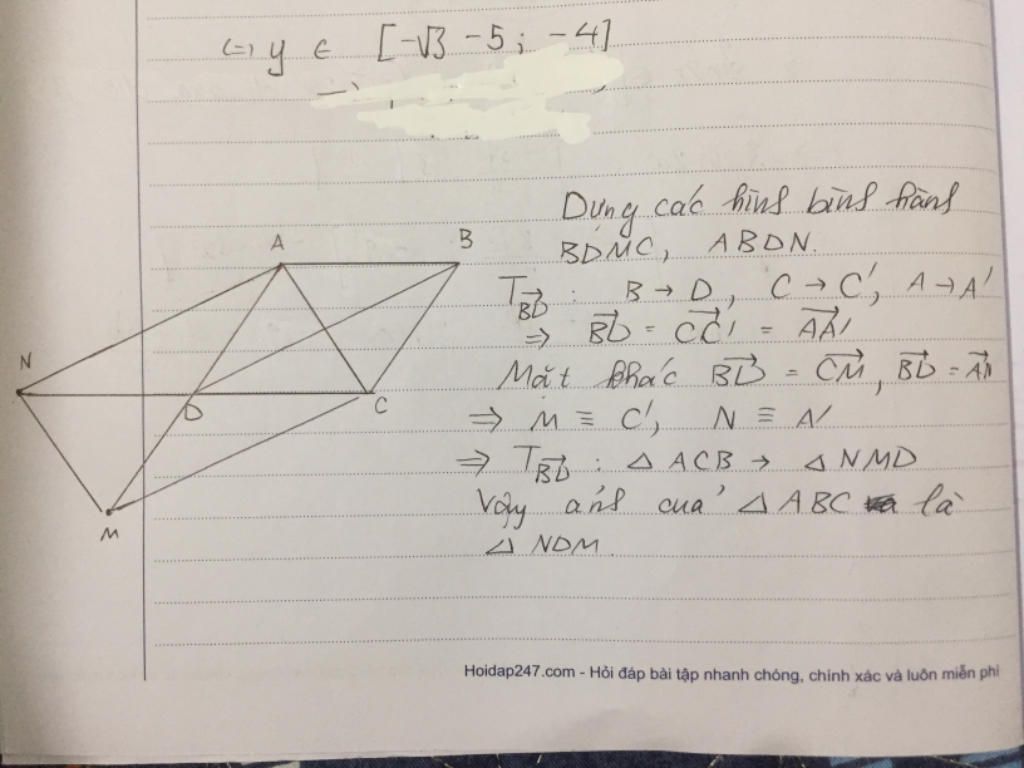 (=) y ∈ [-√3 - 5 ; -4]
Dựng các hình bình hành
BDMC, ABDN.
A
B
T_{\overrightarrow{BD}} : B → D, C → C', A → A'
⇒ \overrightarrow{BD} = \overrightarrow{CC'} = \overrightarrow{AA'}
N
Mặt khác \overrightarrow{BD} = \overrightarrow{CM}, \overrightarrow{BD} = \overrightarrow{AN}
D
C
⇒ M ≡ C', N ≡ A'
⇒ T_{\overrightarrow{BD}} : △ ACB → △ NMD
Vậy ảnh của △ ABC là
M
△ NDM.
Hoidap247.com - Hỏi đáp bài tập nhanh chóng, chính xác và luôn miễn phí